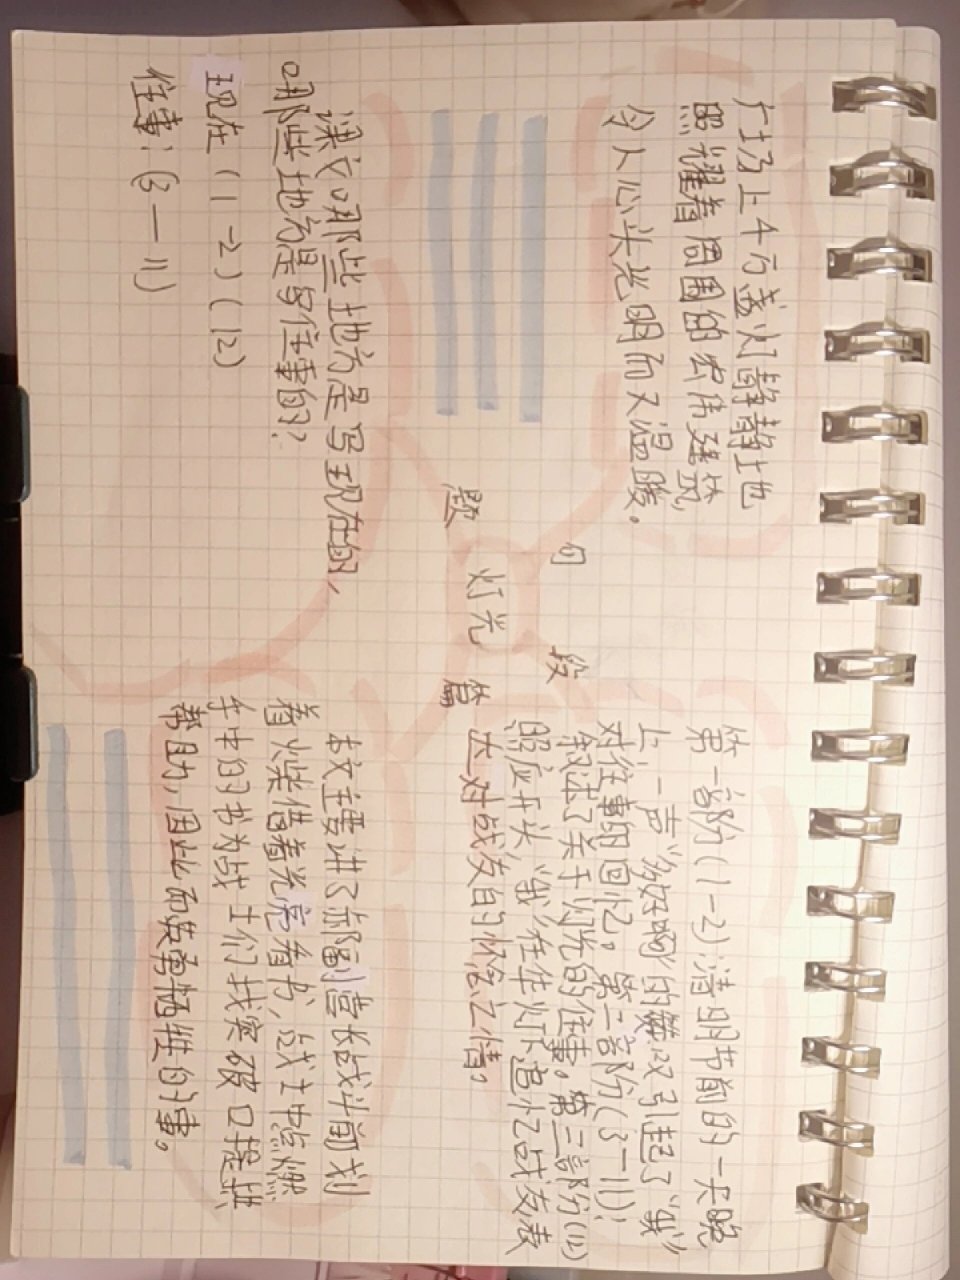 广场上千万盏灯静静地
照耀着周围的宏伟建筑,
令人心头光明而又温暖。
句
段
题
灯光
篇
第一部分(1-2)清明节前的一天晚
上,一声“多好啊”的赞叹引起了“我”
对往事的回忆。第二部分(3-11):
叙述了关于灯光的往事。第三部分(12)
照应开头,“我”在华灯下追忆战友表
达对战友的怀念之情。
课文哪些地方是写现在的,
哪些地方是写往事的?
现在(1-2)(12)
往事:(3-11)
本文主要讲了郝副营长战斗前划
着火柴借着光亮看书,战士中点燃
手中的书为战士们找突破口提供
帮助,因此而英勇牺牲的事。